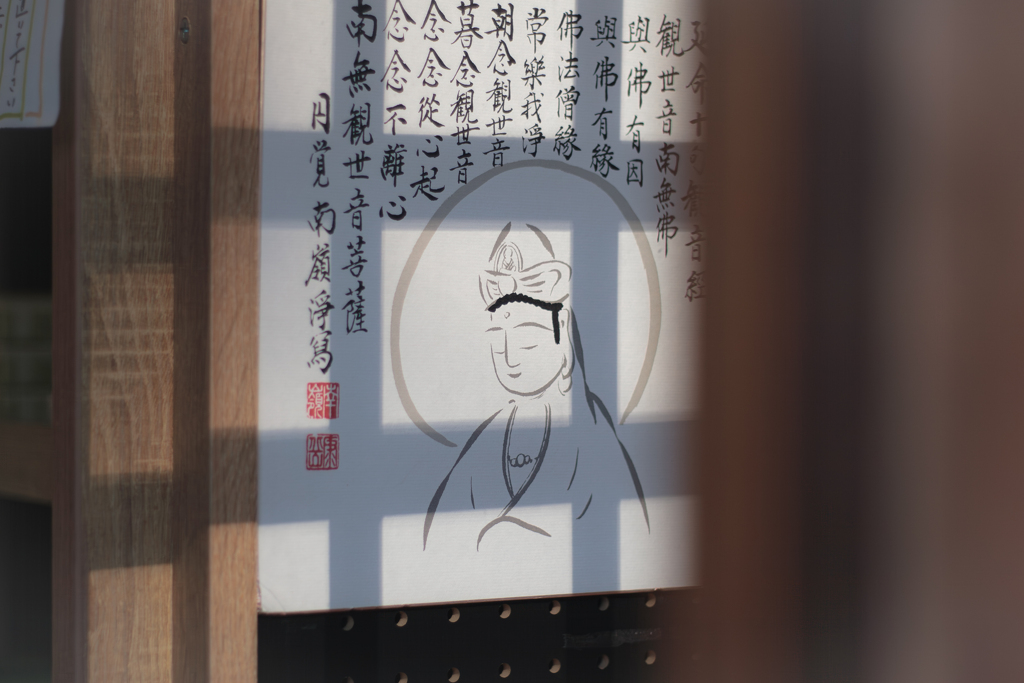 延命十句観音經
観世音南無佛
與佛有因
與佛有緣
佛法僧緣
常樂我淨
朝念観世音
暮念観世音
念念從心起
念念不離心
南無観世音菩薩
円覚南嶺淨寫